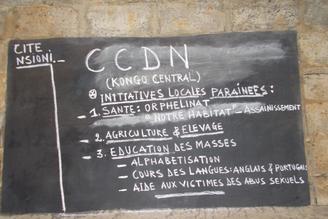 CITE
NSIONI.-
CCDN
(KONGO CENTRAL)
⊗ INITIATIVES LOCALES PARAINEES:
- 1. SANTE: ORPHELINAT
"NOTRE HABITAT"- ASSAINISSEMENT
- 2. AGRICULTURE & ELEVAGE
- 3. EDUCATION DES MASSES
- ALPHABETISATION
- COURS DES LANGUES: ANGLAIS & PORTUGAIS
- AIDE AUX VICTIMES DES ABUS SEXUELS